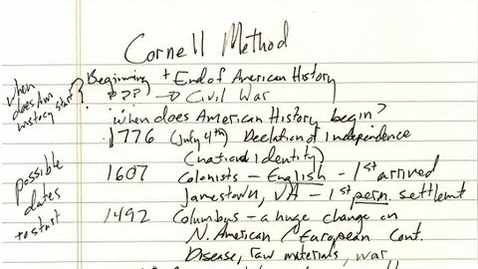 Cornell Method
when does Am history start
Beginning + End of American History
??? → Civil War
when does American History begin?
1776 (July 4th) Declation of Independence
(national identity)
possible dates to start
1607 Colonists - English - 1st arrived
Jamestown, VA - 1st perm. settlemt
1492 Columbus - a huge change on
N. American / European Cont.
Disease, raw materials, war